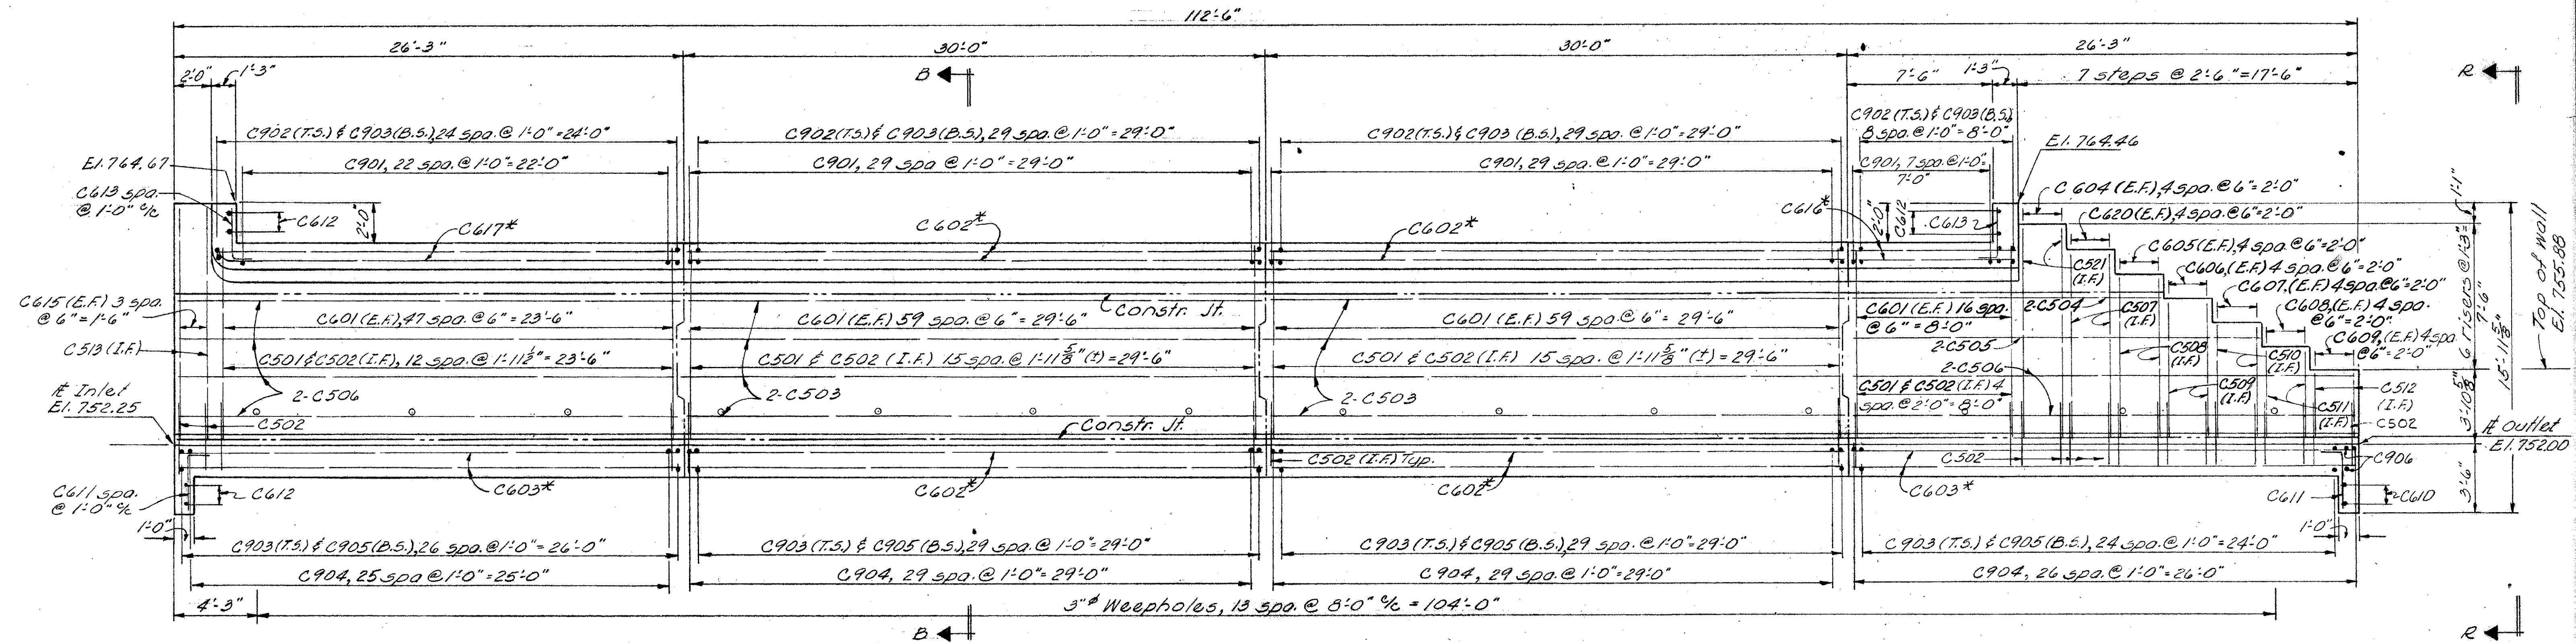 112'-6"
26'-3"
30'-0"
30'-0"
26'-3"
2'-0"
1'-3"
B
7'-6"
1'-3"
7 steps @ 2'-6"=17'-6"
R
C902(T.S.) & C903(B.S.), 24 spa. @ 1'-0"=24'-0"
C902(T.S.) & C903 (B.S.), 29 spa. @ 1'-0"=29'-0"
C902(T.S.) & C903 (B.S.), 29 spa. @ 1'-0"=29'-0"
C902 (T.S.) & C903(B.S.)
8 spa. @ 1'-0"=8'-0"
El. 764.67
C901, 22 spa. @ 1'-0"=22'-0"
C901, 29 spa @ 1'-0"=29'-0"
C901, 29 spa. @ 1'-0"=29'-0"
C901, 7 spa. @ 1'-0"=
7'-0"
El. 764.46
C613 spa.
@ 1'-0" c/c
C612
2'-0"
C617*
C602*
C602*
C616*
2'-0"
C612
C613
C604 (E.F.), 4 spa. @ 6"=2'-0"
C620 (E.F.), 4 spa. @ 6"=2'-0"
C605 (E.F.), 4 spa. @ 6"=2'-0"
C606, (E.F.) 4 spa. @ 6"=2'-0"
C607, (E.F.) 4 spa. @ 6"=2'-0"
C608, (E.F.) 4 spa.
@ 6"=2'-0"
C609, (E.F.) 4 spa
@ 6"=2'-0"
1'-1"
6 risers @ 1'-3"=
7'-6"
15'-11 5/8"
3'-10 5/8"
3'-6"
Top of Wall
El. 755.88
C521
(I.F.)
C615 (E.F.) 3 spa.
@ 6"=1'-6"
C601 (E.F.), 47 spa. @ 6"=23'-6"
C601 (E.F.) 59 spa. @ 6"=29'-6"
Constr. Jt.
C601 (E.F.) 59 spa. @ 6"=29'-6"
C601 (E.F.) 16 spa.
@ 6"=8'-0"
2-C504
C507
(I.F.)
C513 (I.F.)
C501 & C502 (I.F.), 12 spa. @ 1'-11 1/2"=23'-6"
C501 & C502 (I.F.) 15 spa. @ 1'-11 5/8" (±)=29'-6"
C501 & C502 (I.F.) 15 spa. @ 1'-11 5/8" (±)=29'-6"
2-C505
C508
(I.F.)
C510
(I.F.)
2-C506
C501 & C502 (I.F.) 4
spa. @ 2'-0"=8'-0"
C509
(I.F.)
C512
(I.F.)
C511
(I.F.)
C502
℄ Inlet
El. 752.25
2-C506
2-C503
2-C503
C502
Constr. Jt.
C502 (I.F.) Typ.
C502
℄ Outlet
El. 752.00
C906
C611 spa.
@ 1'-0" c/c
C612
C603*
C602*
C602*
C603*
C611
C610
1'-0"
1'-0"
C903 (T.S.) & C905 (B.S.), 26 spa. @ 1'-0"=26'-0"
C903 (T.S.) & C905 (B.S.), 29 spa. @ 1'-0"=29'-0"
C903 (T.S.) & C905 (B.S.), 29 spa. @ 1'-0"=29'-0"
C903 (T.S.) & C905 (B.S.), 24 spa. @ 1'-0"=24'-0"
C904, 25 spa @ 1'-0"=25'-0"
C904, 29 spa. @ 1'-0"=29'-0"
C904, 29 spa. @ 1'-0"=29'-0"
C904, 26 spa. @ 1'-0"=26'-0"
4'-3"
3"ø Weepholes, 13 spa. @ 8'-0" c/c = 104'-0"
B
R